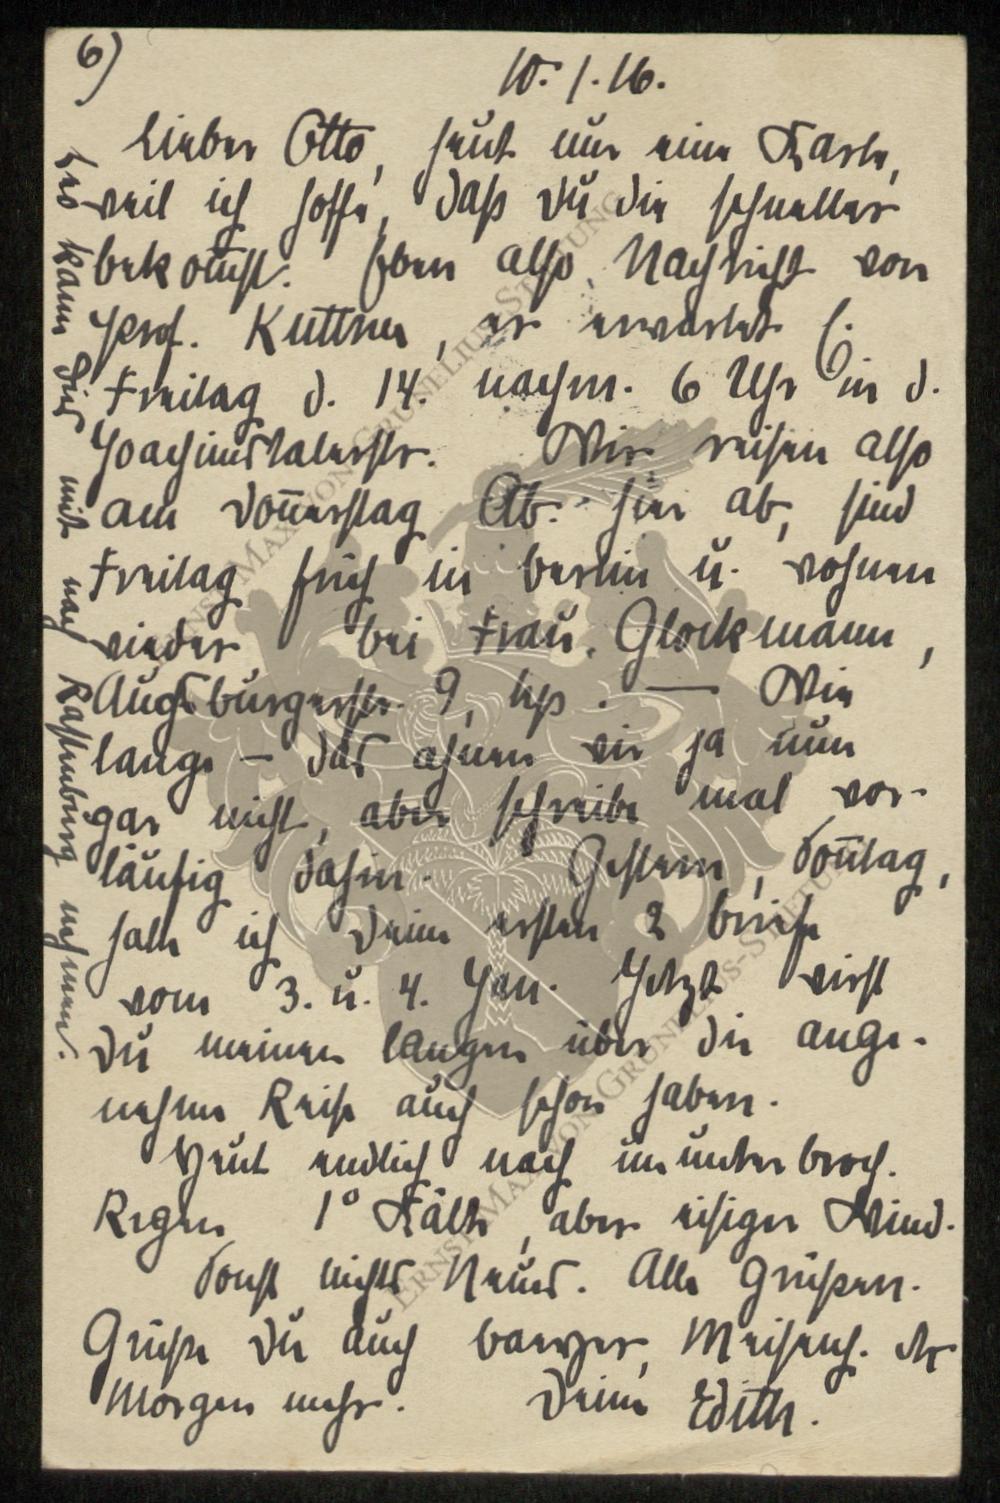 6)
10.1.16.
Lieber Otto, heut nur eine Karte,
weil ich hoffe, daß Du die schneller
bekom̄st. Eben also Nachricht von
Prof. Kuttner, er erwartet E.
Freitag d. 14. nachm. 6 Uhr in d.
Joachimstalerstr. Wir reisen also
am Don̄erstag Ab. hier ab, sind
Freitag früh in Berlin u. wohnen
wieder bei Frau Glockmann,
Augsburgerstr. 9, hp. — Wie
lange – das ahnen wir ja nun
gar nicht, aber schreibe mal vor-
läufig dahin. Gestern, Son̄tag,
hatte ich Deine ersten 2 Briefe
vom 3. u. 4. Jan. Jetzt wirst
Du meinen langen über die ange-
nehme Reise auch schon haben.
Heut endlich nach ununterbroch.
Regen 1° Kälte, aber eisiger Wind.
Sonst nichts Neues. Alle grüßen.
Grüße Du auch Meisench. etc
Morgen mehr. Deine Edith.
Leo kann Dies mit nach Rastenburg nehmen.
ERNST MAX VON GRUNELIUS-STIFTUNG
ERNST MAX VON GRUNELIUS-STIFTUNG